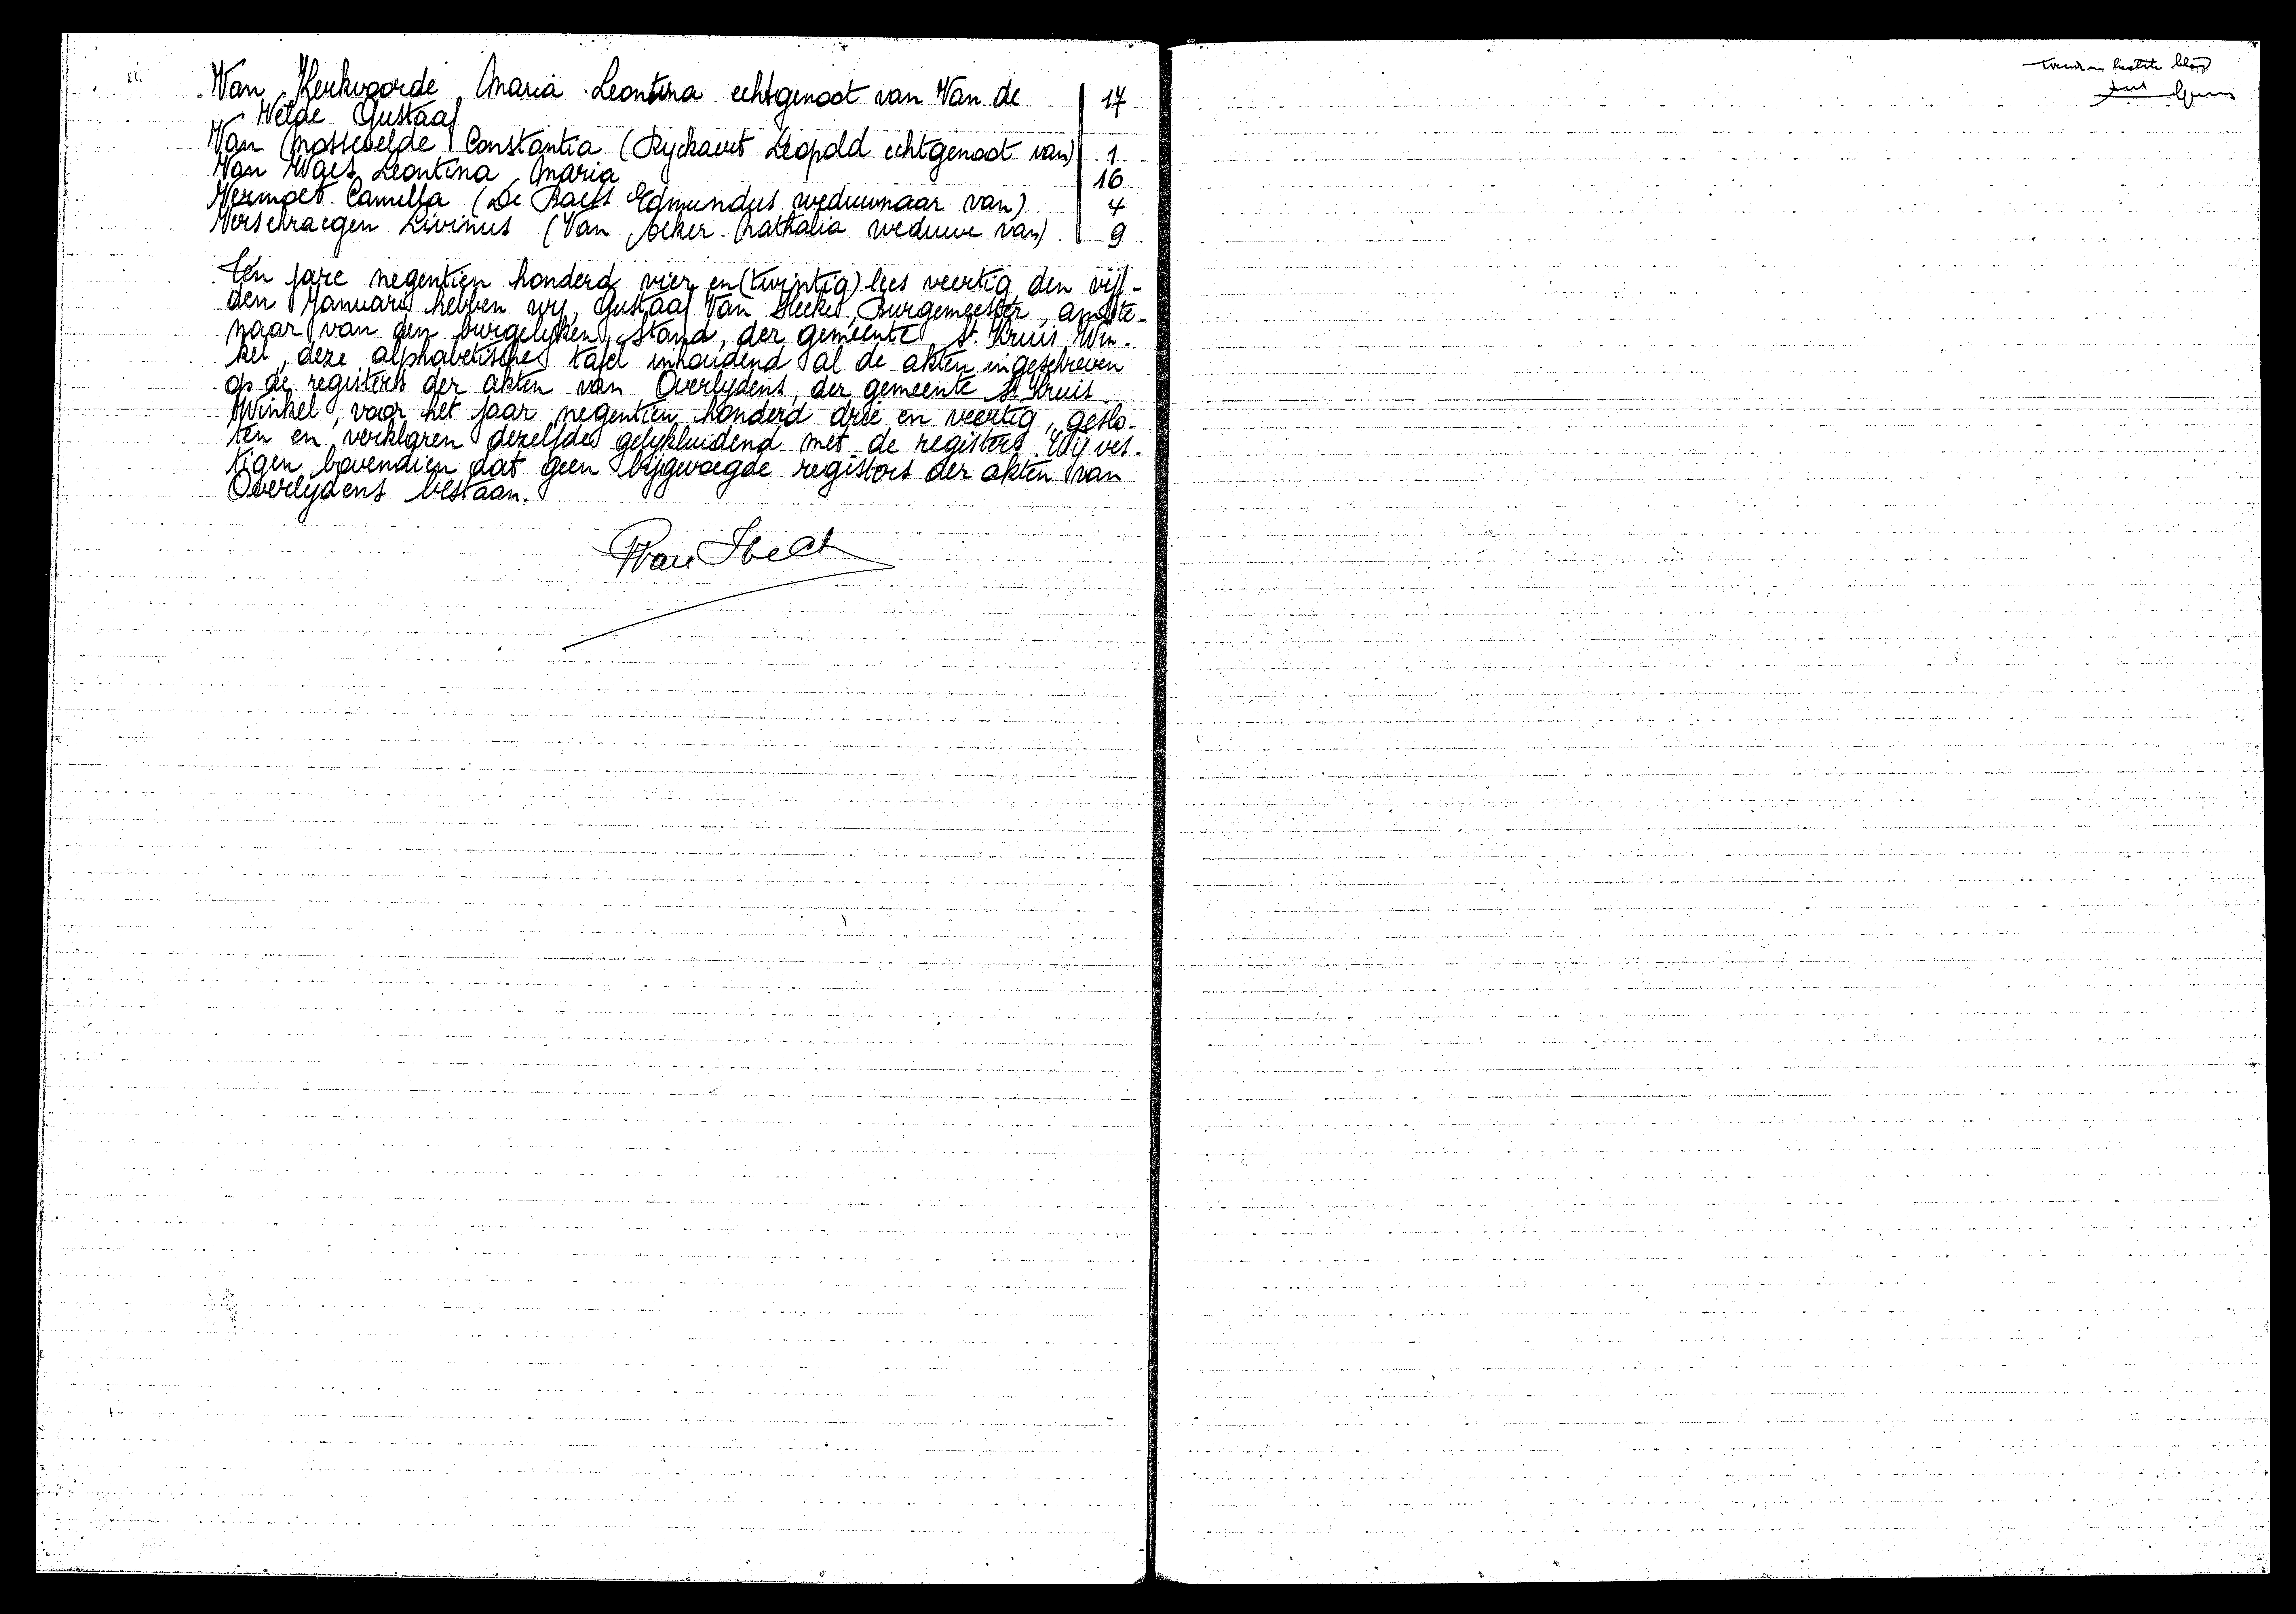 Van Kerkvoorde Maria Leontina echtgenoot van Van de 17
Velde Gustaaf
Van Mossevelde Constantia (Ryckaert Leopold echtgenoot van) 1
Van Waes Leontina Maria 16
Vermoet Camilla (De Baets Edmundus weduwnaar van) 4
Verschraegen Livinus (Van Acker Nathalia weduwe van) 9
Ten jare negentien honderd vier en (twintig) lees veertig den vijf-
den Januari hebben wij, Gustaaf Van Hecke, Burgemeester, ambte-
naar van den burgelijken stand, der gemeente St. Kruis Win-
kel, deze alphabetische tafel inhoudend al de akten ingeschreven
op de registers der akten van Overlijdens, der gemeente St. Kruis
Winkel, voor het jaar negentien honderd drie en veertig, geslo-
ten en verklaren dezelfde gelijkluidend met de registers. Wij ves-
tigen bovendien dat geen bijgevoegde registers der akten van
Overlijdens bestaan.
laatste blad